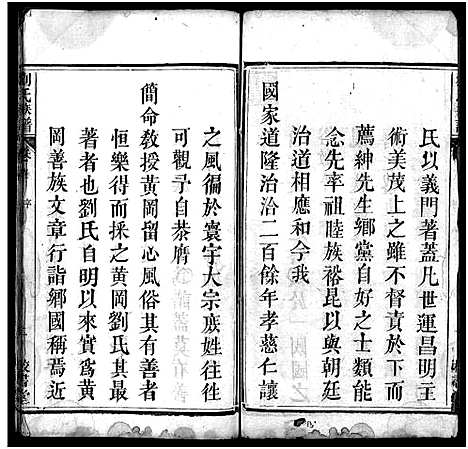 氏以義門著蓋凡世運昌明王
術美茂上之雖不督責於下而
薦紳先生鄉黨自好之士類能
念先率祖睦族裕昆以與朝廷
治道相應和今我
國家道隆治洽二百餘年孝慈仁讓
之風徧於寰宇大宗巨姓往往
可觀予自恭膺
簡命教授黃岡留心風俗其有善者
恒樂得而採之黃岡劉氏其最
著者也劉氏自明以來實爲黃
岡善族文章行誼鄉國稱焉近
劉氏族譜
序